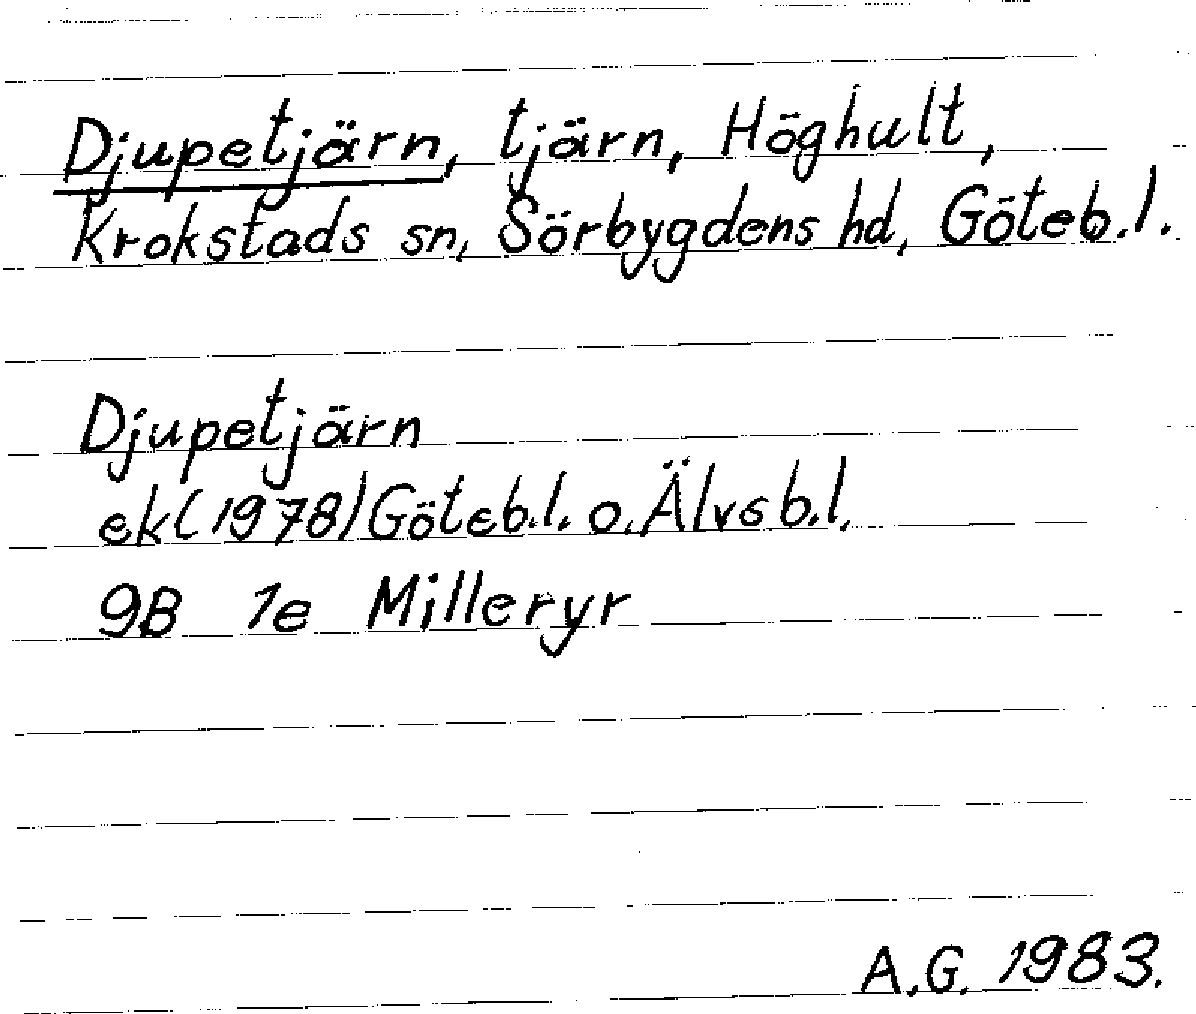 Djupetjärn, tjärn, Höghult,
Krokstads sn, Sörbygdens hd, Göteb.l.
Djupetjärn
ek(1978)Göteb.l. o. Älvsb.l.
9B 1e Milleryr
A.G. 1983.